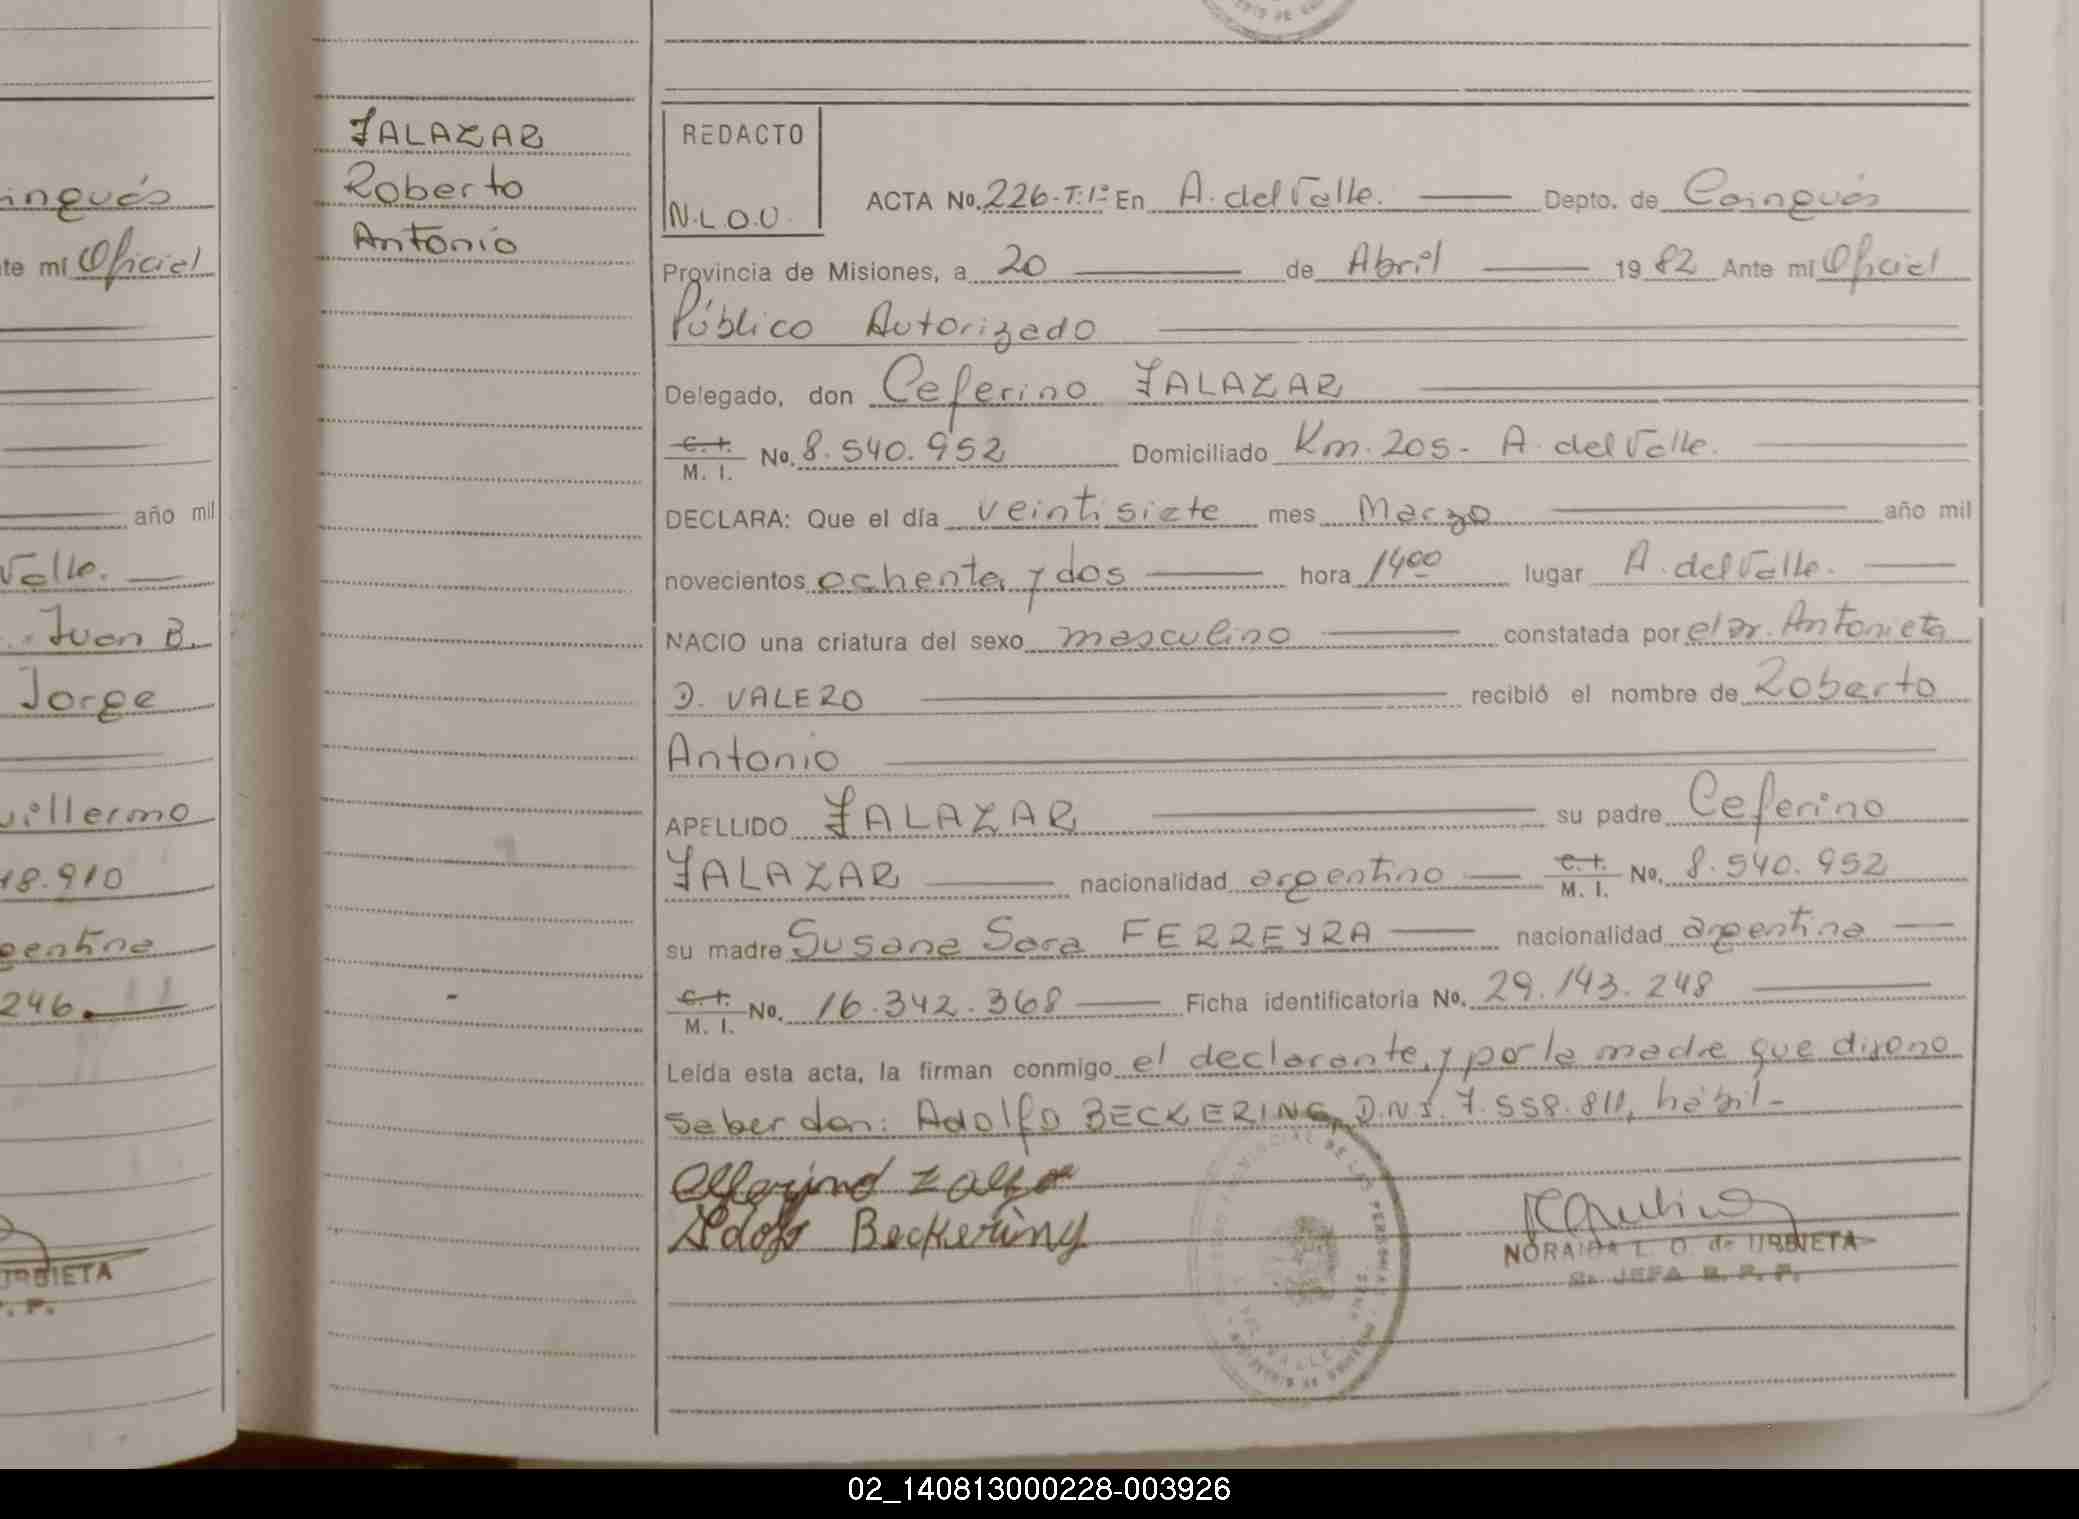 inguás
te mi Oficial
año mil
Valle.
Juan B.
Jorge
uillermo
18.910
gentina
246.
URBIETA
. P.
ZALAZAR
Roberto
Antonio
REDACTO
N.L.O.U.
ACTA No. 226-T:1º En A. del Valle. Depto. de Cainguás
Provincia de Misiones, a 20 de Abril 19 82 Ante mi Oficial
Público Autorizado
Delegado, don Ceferino ZALAZAR
C. I. M. I. No. 8.540.952 Domiciliado Km. 205- A. del Valle.
DECLARA: Que el día veintisiete mes Marzo año mil
novecientos ochenta y dos hora 14⁰⁰ lugar A. del Valle.
NACIO una criatura del sexo masculino constatada por el Dr. Antonieta
D. VALERO recibió el nombre de Roberto
Antonio
APELLIDO ZALAZAR su padre Ceferino
ZALAZAR nacionalidad argentino C. I. M. I. No. 8.540.952
su madre Susana Sara FERREYRA nacionalidad argentina
C. I. M. I. No. 16.342.368 Ficha identificatoria No. 29.143.248
Leída esta acta, la firman conmigo el declarante, y por la madre que dijo no
saber don: Adolfo BECKERING, D.N.I. 7.558.811, hábil-
Adolfo Beckering
NORAIDA L. O. de URBIETA
JEFA R. P. P.
02_140813000228-003926